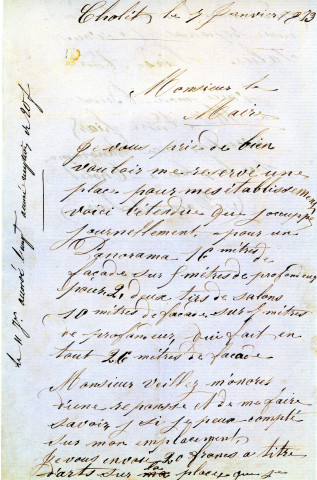 Cholet le 7 Janvier 1873
Monsieur le
Maire
Je vous prie de bien
vouloir me reservé une
place pour mes établissements
voici l'étendue que j'occupe
journellement, pour un
Panorama 16 mètres de
façade sur 5 mètres de profondeur
pour 2, deux tirs de salons
10 mètres de facade sur 5 mètres
de profondeur, qui fait en
tout 26 mètres de facade
Monsieur veillez m'honoré
d'une reponsse et de me faire
savoir si je peux compté
sur mon emplacement,
Je vous envoie 20 francs a titre
d'arts sur la place que je
le 11 Jer envoyé